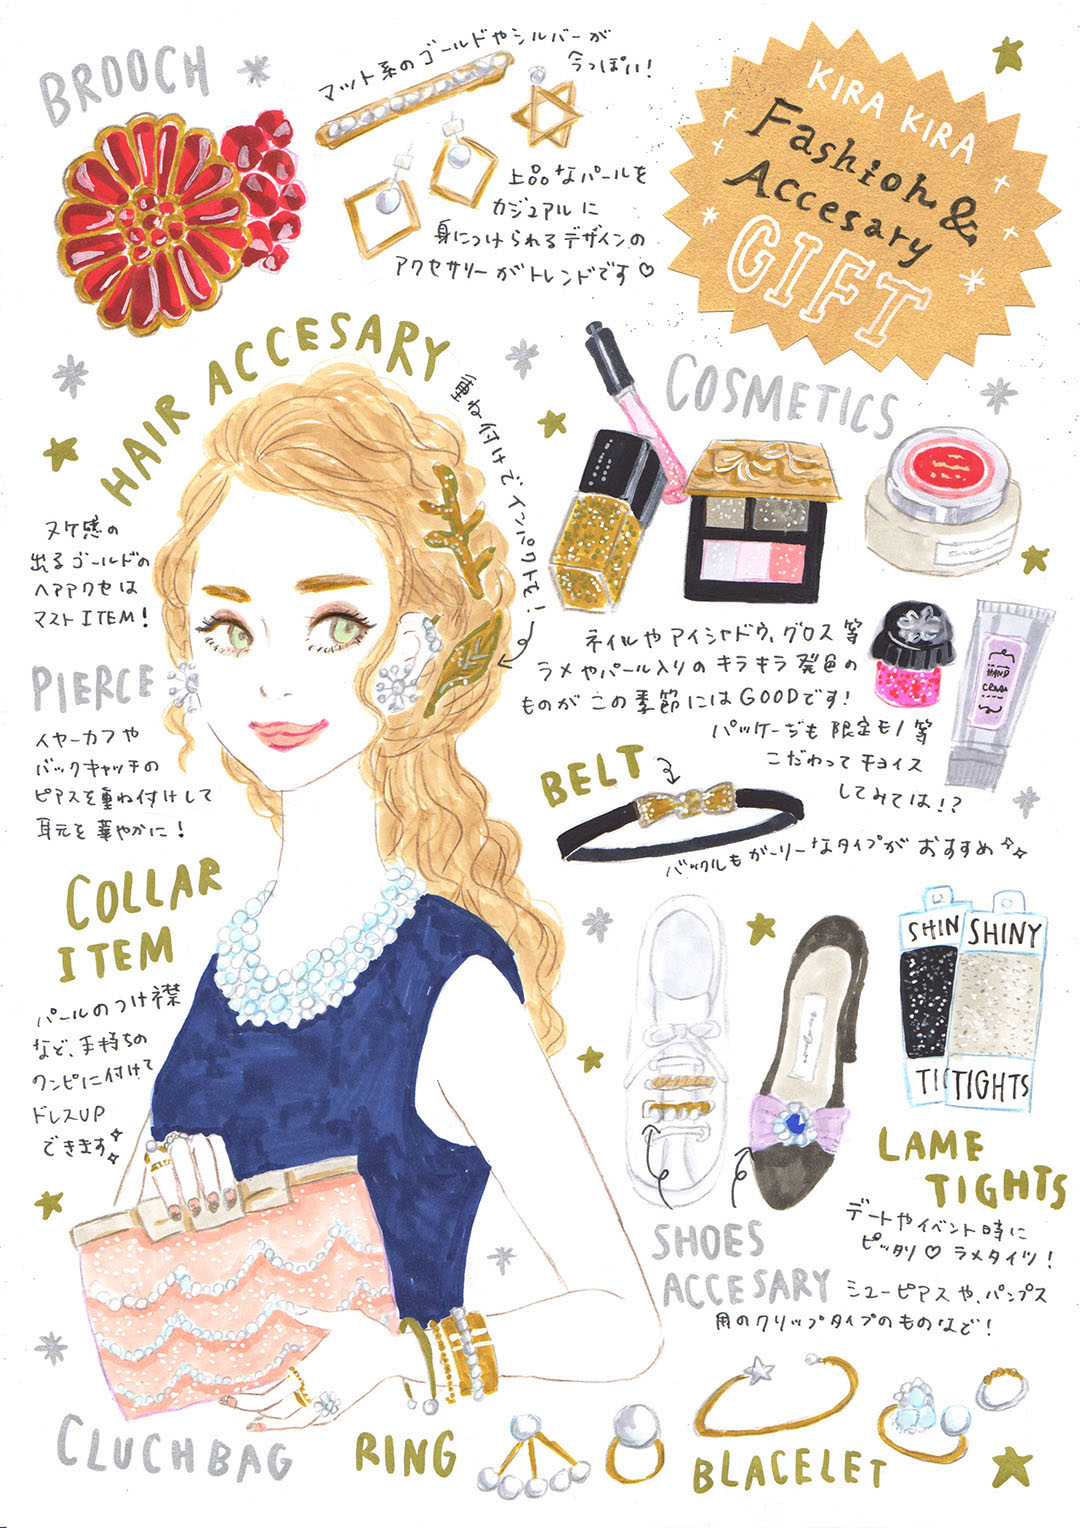 BROOCH
マット系のゴールドやシルバーが
今っぽい!
上品なパールを
カジュアルに
身につけられるデザインの
アクセサリーがトレンドです♡
KIRA KIRA
Fashion &
Accesary
GIFT
HAIR ACCESARY
重ね付けでインパクトを!
ヌケ感の
出るゴールドの
ヘアアクセは
マストITEM!
COSMETICS
HAND
CREAM
ネイルやアイシャドウ、グロス等
ラメやパール入りのキラキラ発色の
ものがこの季節にはGOODです!
パッケージも限定モノ等
こだわってチョイス
してみては!?
PIERCE
イヤーカフや
バックキャッチの
ピアスを重ね付けして
耳元を華やかに!
BELT
バックルもガーリーなタイプがおすすめ
COLLAR
ITEM
パールのつけ襟
など、手持ちの
ワンピに付けて
ドレスUP
できます
SHINY
TIGHTS
SHIN
TIG
LAME
TIGHTS
デートやイベント時に
ピッタリ♡ ラメタイツ!
SHOES
ACCESARY
シューピアスや、パンプス
用のクリップタイプのものなど!
CLUCHBAG
RING
BLACELET